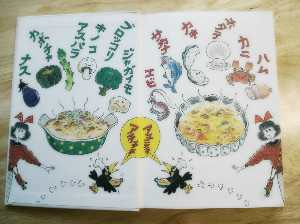 ハム
カニ
ホタテ
カキ
サカナ
エビ
ジャガイモ
ブロッコリ
キノコ
アスパラ
カボチャ
ナス